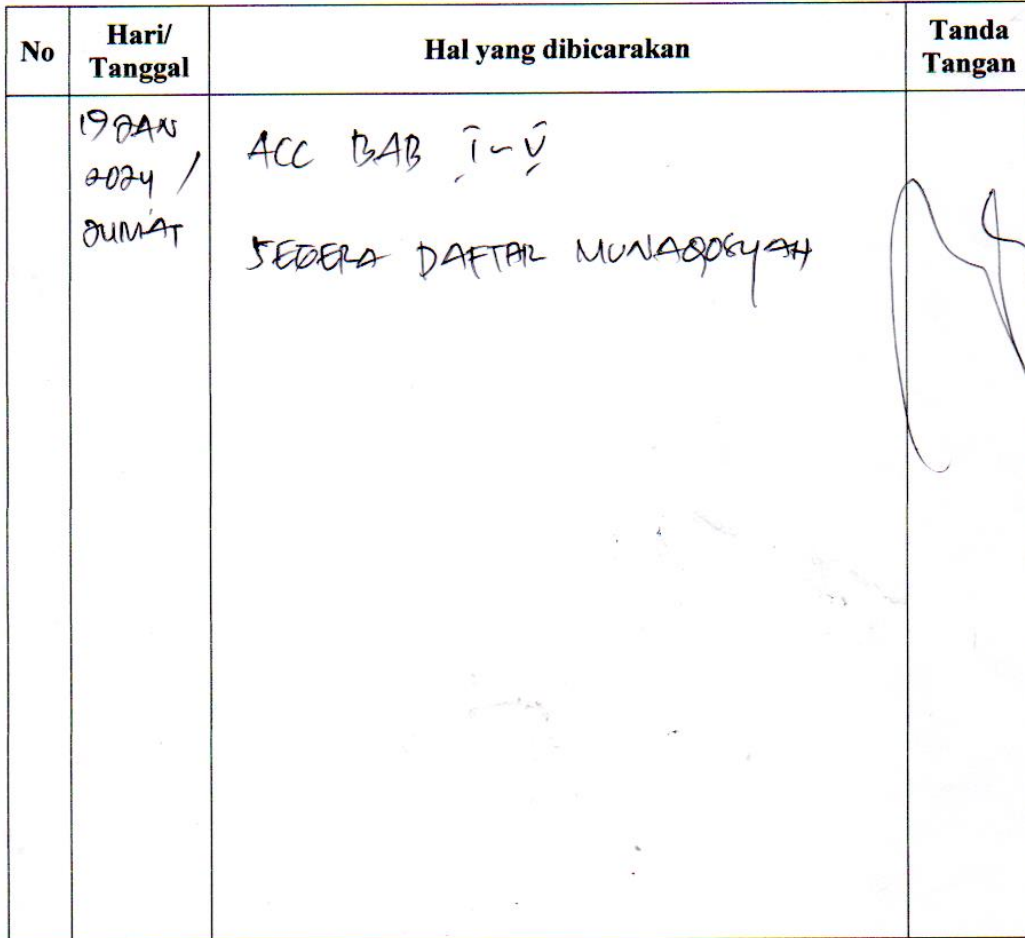 No
Hari/
Tanggal
Hal yang dibicarakan
Tanda
Tangan
19 JAN
2024 /
JUMAT
ACC BAB I - V
SEGERA DAFTAR MUNAQOSYAH